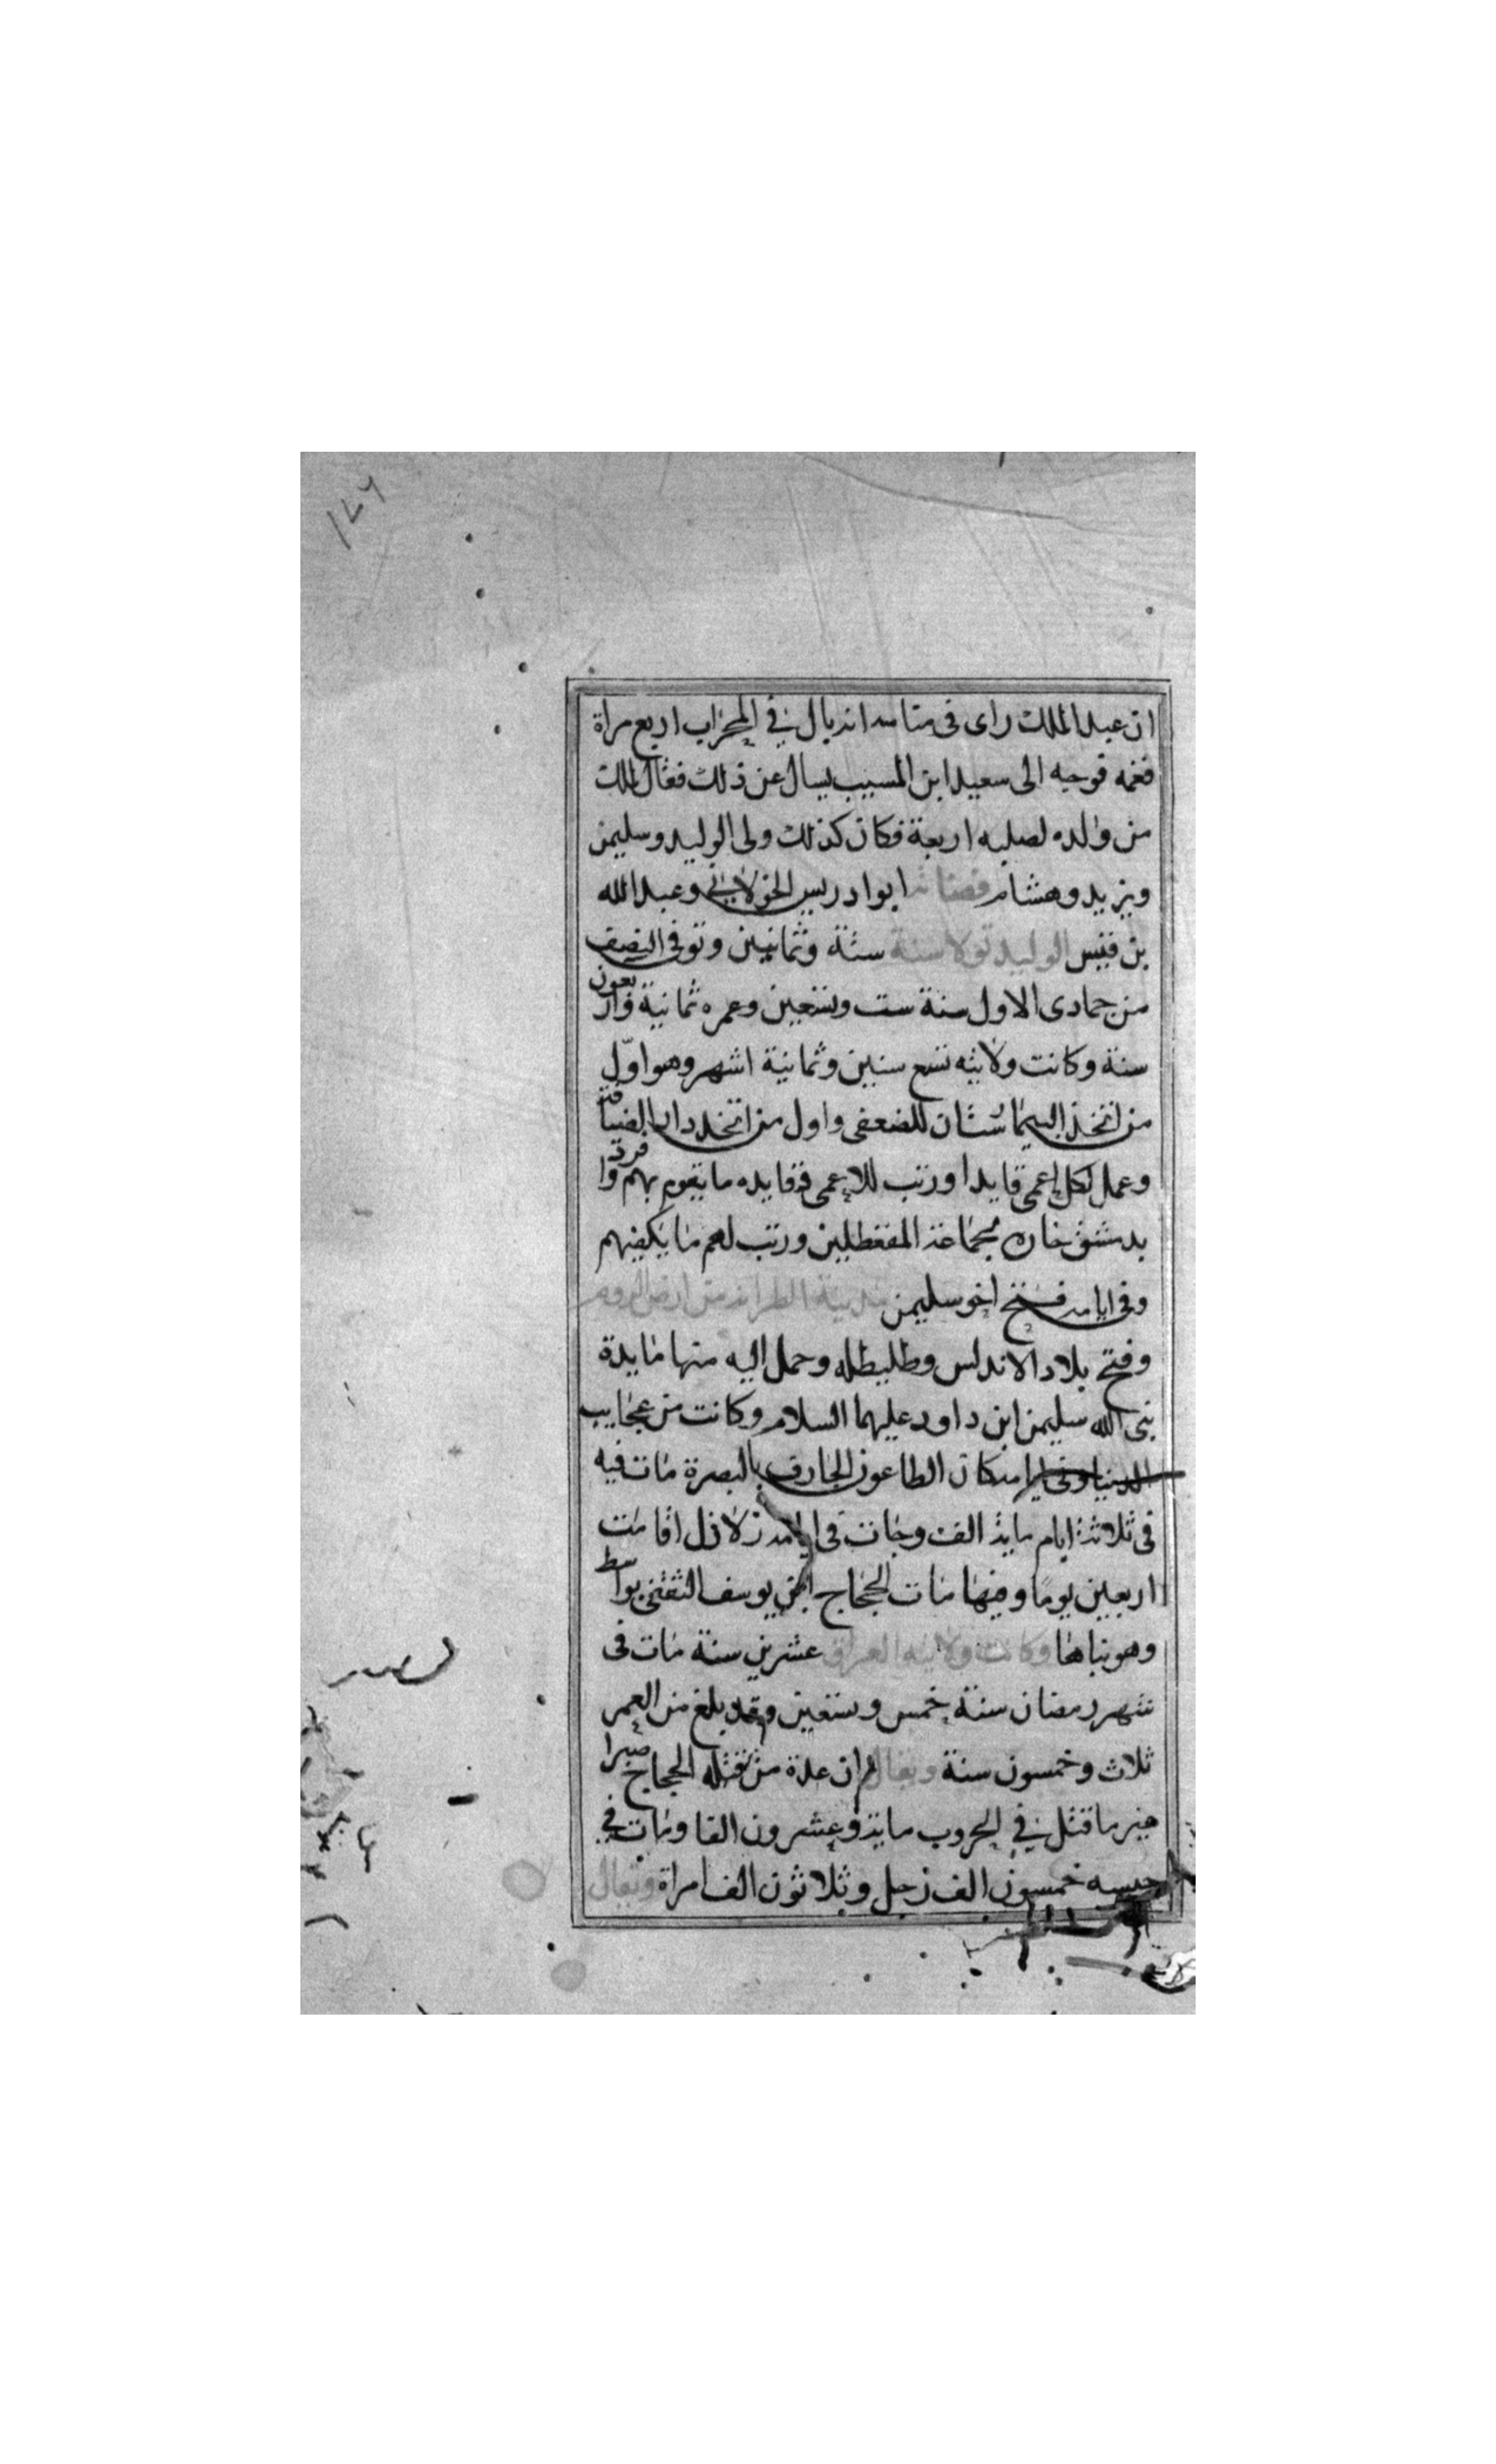 ١٤٦
ان عبد الملك راى فى منامه انه بال في المحراب اربع مراة
فغمه فوجه الى سعيد ابن المسيب يسال عن ذلك فقال لملك
من والده لصلبه اربعة فكان كذلك ولى الوليد وسليمن
ويزيد وهشام قضاته ابو ادريس الخولاني وعبد الله
بن قيس الوليد تولا سنة ستة وثمانين وتوفى النصف
من جمادى الاول سنة ست وتسعين وعمره ثمانية واربعون
سنة وكانت ولايته تسع سنين وثمانية اشهر وهو اوّل
من اتخذ البيمارستان للضعفى واول من اتخد دار الضيافة
وعمل لكل اعمى قايدا ورتب للاعمى وقايده ما يقوم بهم وافرد
بدمشق خان بجماعة ورتب لهم ما يكفيهم
وفى ايامه فتح اخو سليمن مدينة من ارض الروم
وفتح بلاد الاندلس وطليطله وحمل اليه منها مايدة
نبى الله سليمن ابن داود عليهما السلام وكانت من عجايب
الدنيا وفى ايامه كان الطاعون الجارف بالبصرة مات فيه
فى ثلاثة ايام ماية الف وجات فى ايامه زلازل اقامت
اربعين يوما وفيها مات الحجاج ابن يوسف الثقفى بواسط
وهو بناها وكانت ولايته العراق عشرين سنة مات فى
شهر رمضان سنة خمس وتسعين وقد بلغ من العمر
ثلاث وخمسون سنة ويقال ان عدة من قتله الحجاج صبرا
غير ما قتل في الحروب ماية وعشرون الفا ومات في
حبسه خمسون الف رجل وثلاثون الف امراة ويقال